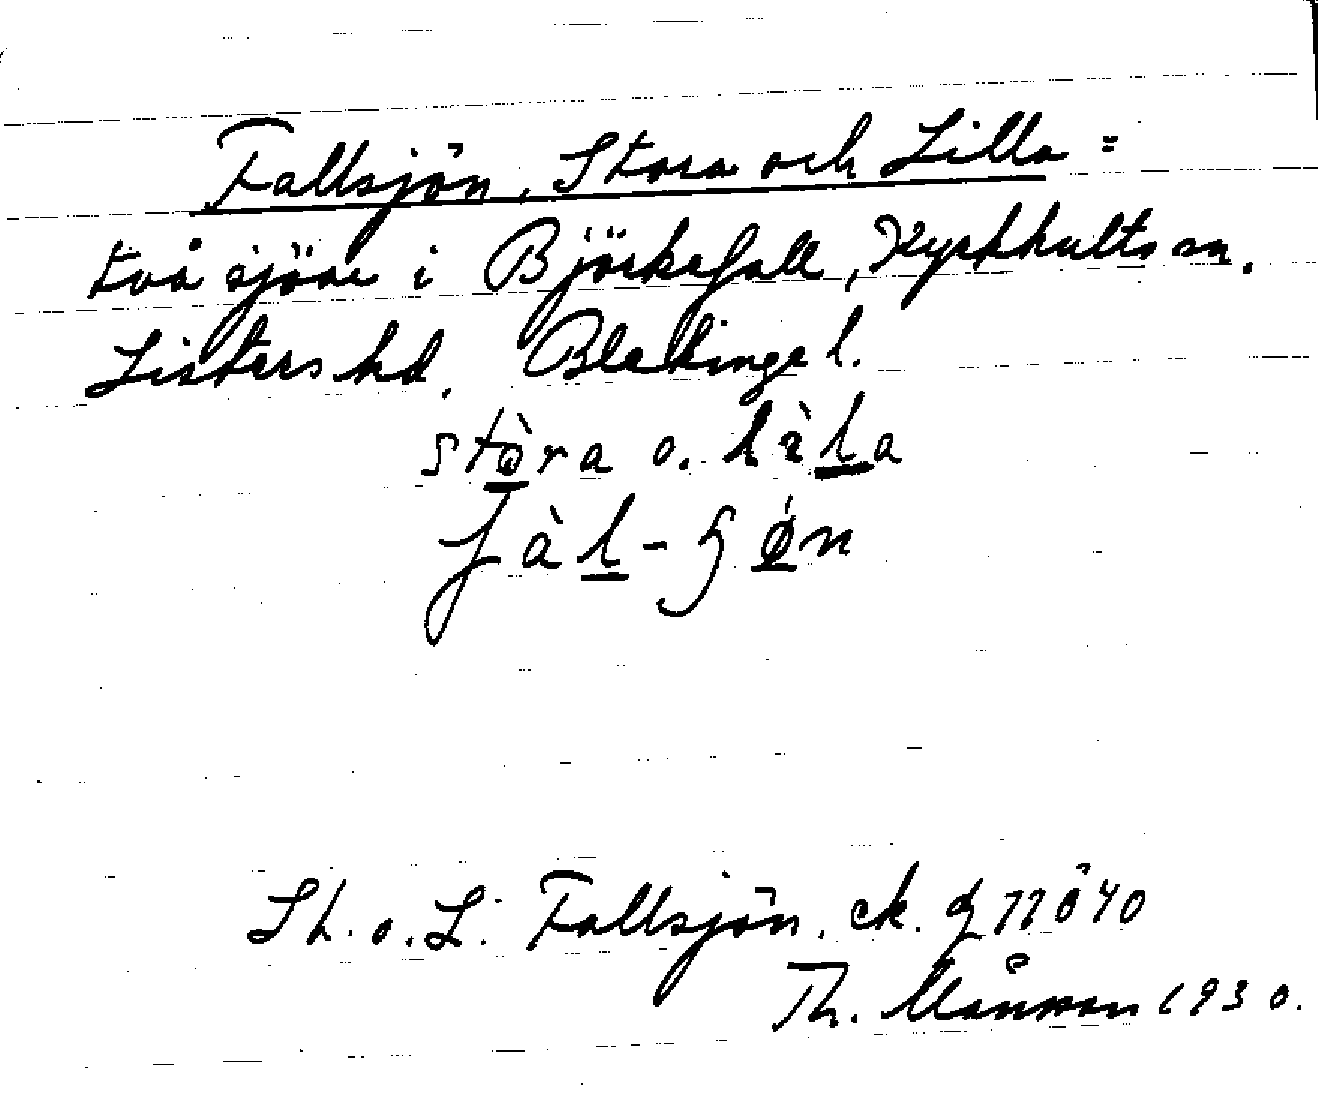 Fallsjön, Stora och Lilla =
två sjöar i Björkefall, Kyrkhults sn.
Listers hd. Blekinge l.
stòra o. lìla
fàl-ʃǿn
St. o. L. Fallsjön. ek.
Th. Månson 1930.